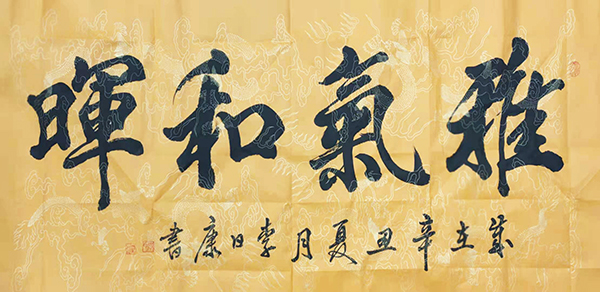 雅氣和暉
歲在辛丑夏月李日康書